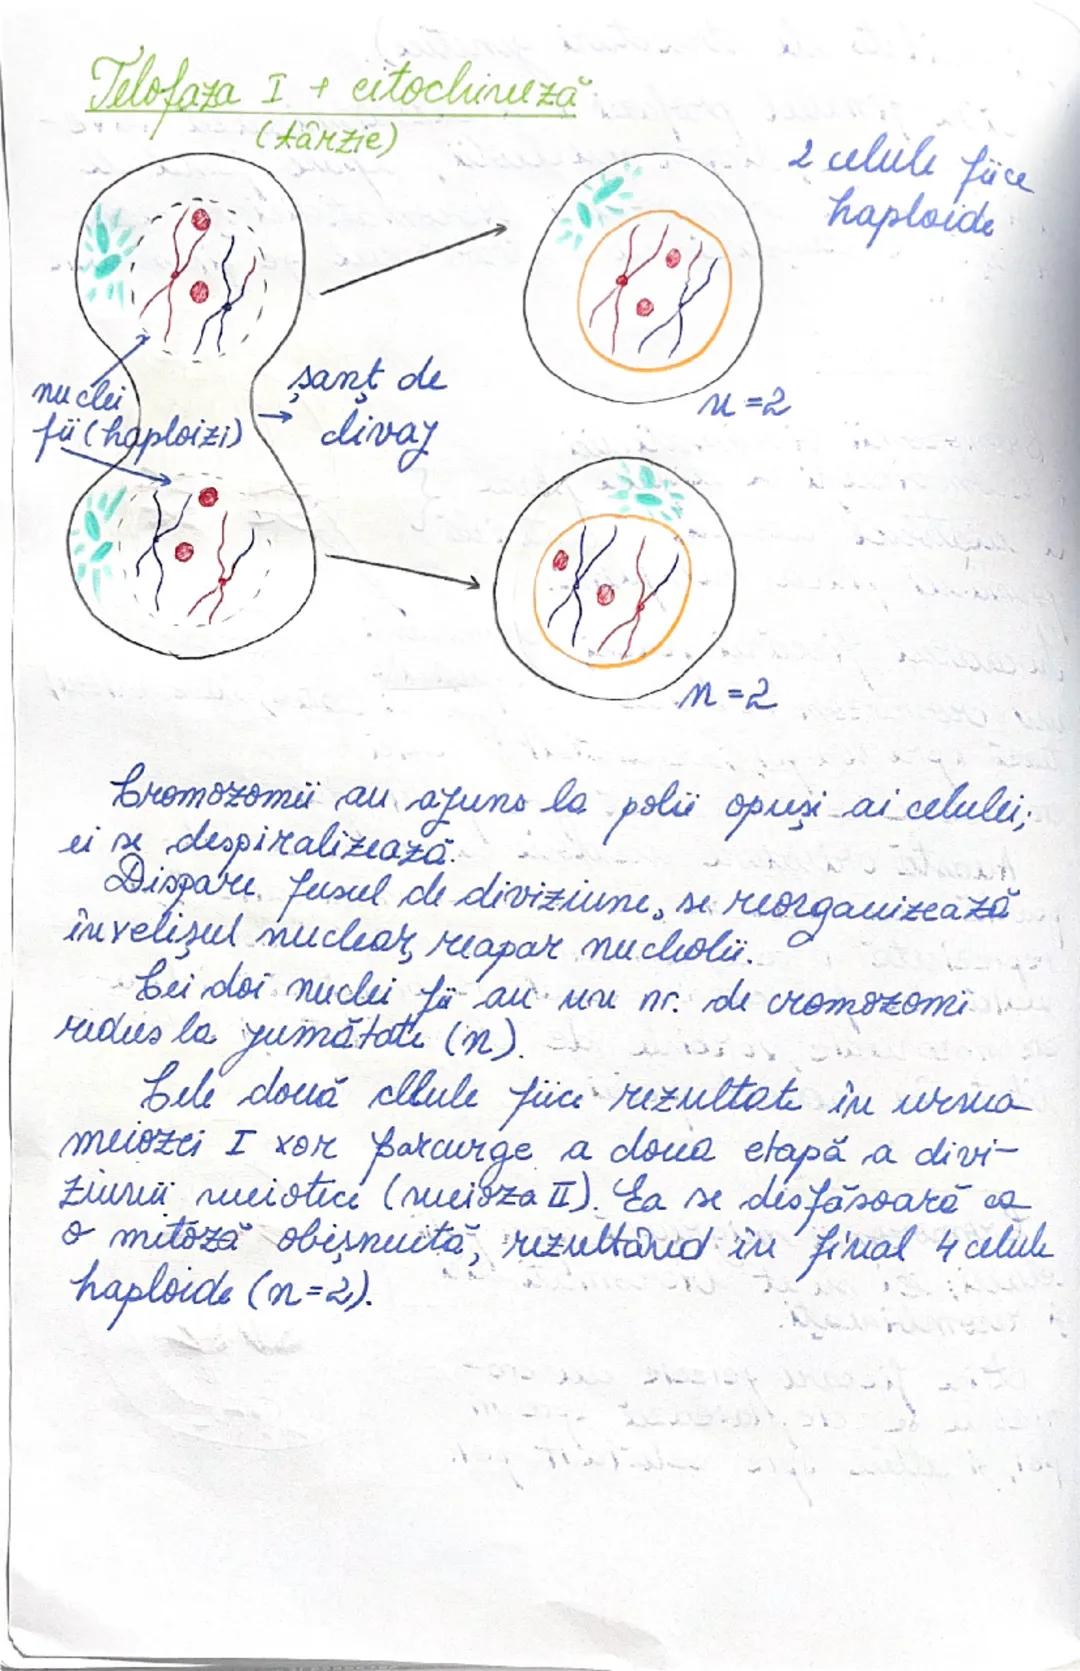 Telofaza I + citochineză
(târzie)
2 celule fiice
haploide
nuclei
fii (haploizi)
șanț de
clivaj
n=2
n=2
Cromozomii au ajuns la polii opuși ai celulei;
ei se despiralizează.
Dispare fusul de diviziune, se reorganizează
învelișul nuclear, reapar nucleolii.
Cei doi nuclei fii au un nr. de cromozomi
redus la jumătate (n).
Cele două celule fiice rezultate în urma
meiozei I vor parcurge a doua etapă a divi-
ziunii meiotice (meioza II). Ea se desfășoară ca
o mitoză obișnuită, rezultând în final 4 celule
haploide (n=2).